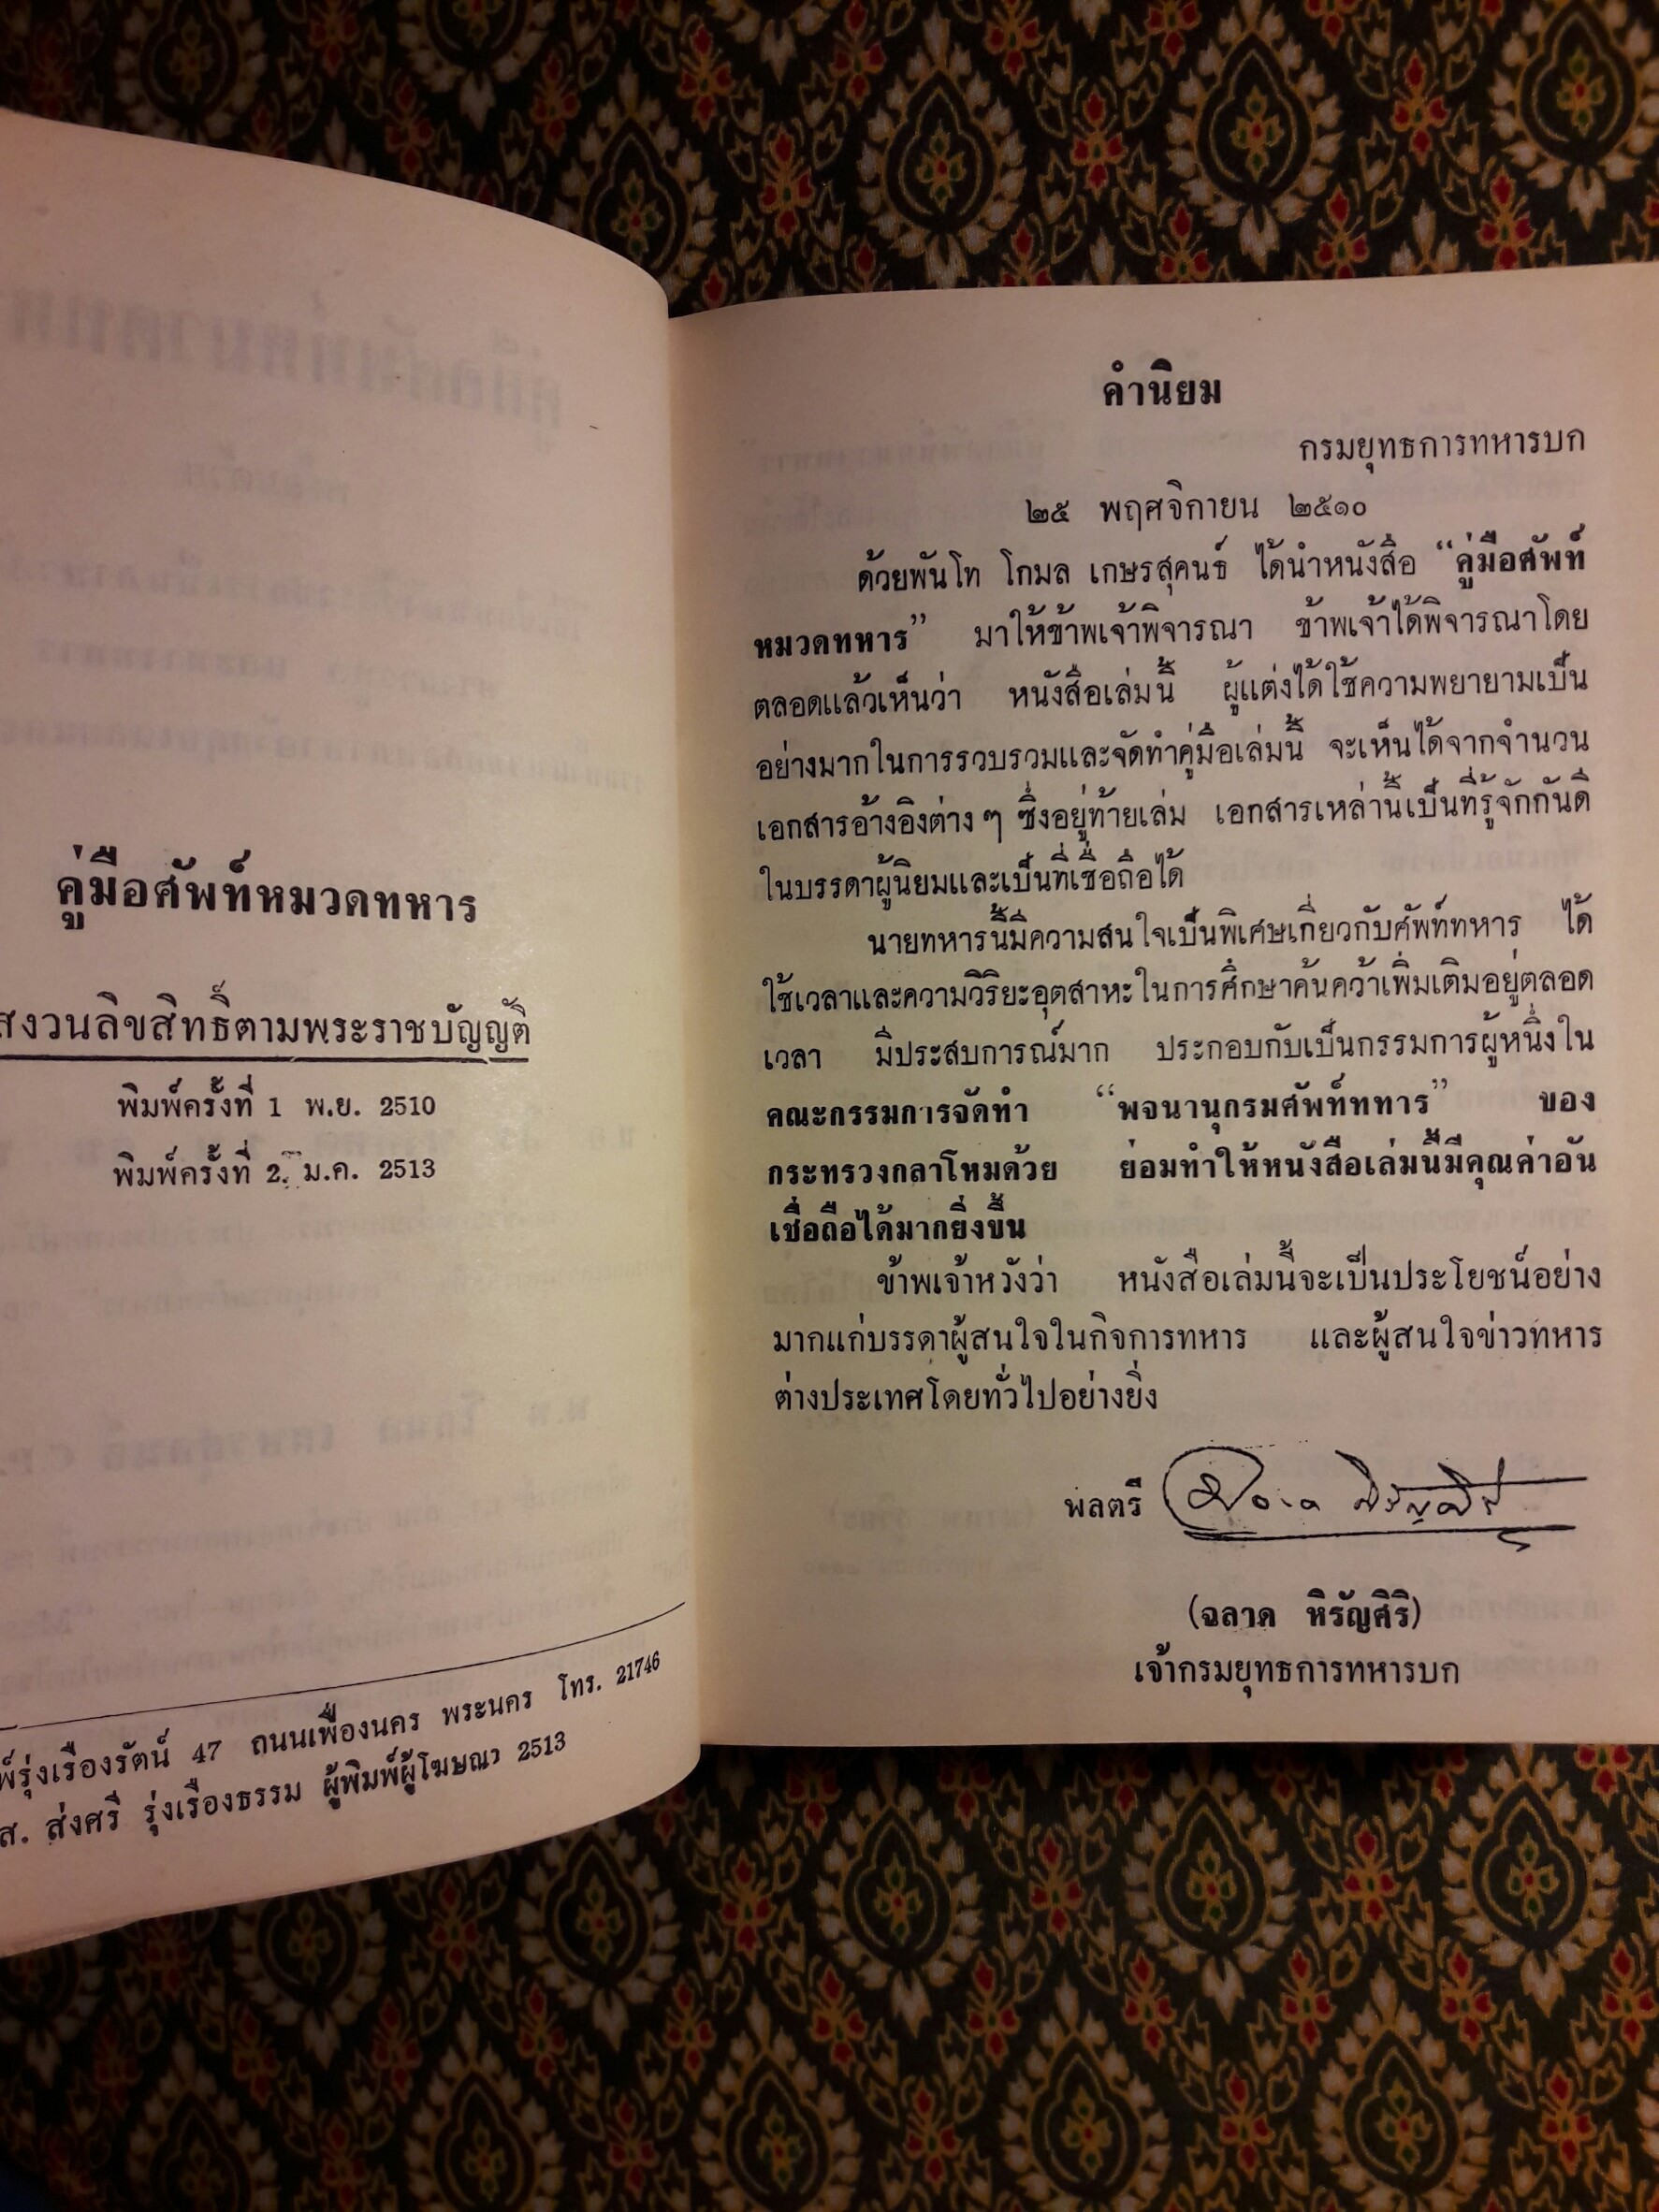 คู่มือศัพท์หมวดทหาร
สงวนลิขสิทธิ์ตามพระราชบัญญัติ
พิมพ์ครั้งที่ 1 พ.ย. 2510
พิมพ์ครั้งที่ 2. ม.ค. 2513
พ์รุ่งเรืองรัตน์ 47 ถนนเฟื่องนคร พระนคร โทร. 21746
ส. ส่งศรี รุ่งเรืองธรรม ผู้พิมพ์ผู้โฆษณา 2513
คำนิยม
กรมยุทธการทหารบก
๒๕ พฤศจิกายน ๒๕๑๐
ด้วยพันโท โกมล เกษรสุคนธ์ ได้นำหนังสือ “คู่มือศัพท์
หมวดทหาร” มาให้ข้าพเจ้าพิจารณา ข้าพเจ้าได้พิจารณาโดย
ตลอดแล้วเห็นว่า หนังสือเล่มนี้ ผู้แต่งได้ใช้ความพยายามเป็น
อย่างมากในการรวบรวมและจัดทำคู่มือเล่มนี้ จะเห็นได้จากจำนวน
เอกสารอ้างอิงต่าง ๆ ซึ่งอยู่ท้ายเล่ม เอกสารเหล่านี้เป็นที่รู้จักกันดี
ในบรรดาผู้นิยมและเป็นที่เชื่อถือได้
นายทหารนี้มีความสนใจเป็นพิเศษเกี่ยวกับศัพท์ทหาร ได้
ใช้เวลาและความวิริยะอุตสาหะในการศึกษาค้นคว้าเพิ่มเติมอยู่ตลอด
เวลา มีประสบการณ์มาก ประกอบกับเป็นกรรมการผู้หนึ่งใน
คณะกรรมการจัดทำ “พจนานุกรมศัพท์ททาร” ของ
กระทรวงกลาโหมด้วย ย่อมทำให้หนังสือเล่มนี้มีคุณค่าอัน
เชื่อถือได้มากยิ่งขึ้น
ข้าพเจ้าหวังว่า หนังสือเล่มนี้จะเป็นประโยชน์อย่าง
มากแก่บรรดาผู้สนใจในกิจการทหาร และผู้สนใจข่าวทหาร
ต่างประเทศโดยทั่วไปอย่างยิ่ง
พลตรี
(ฉลาด หิรัญศิริ)
เจ้ากรมยุทธการทหารบก